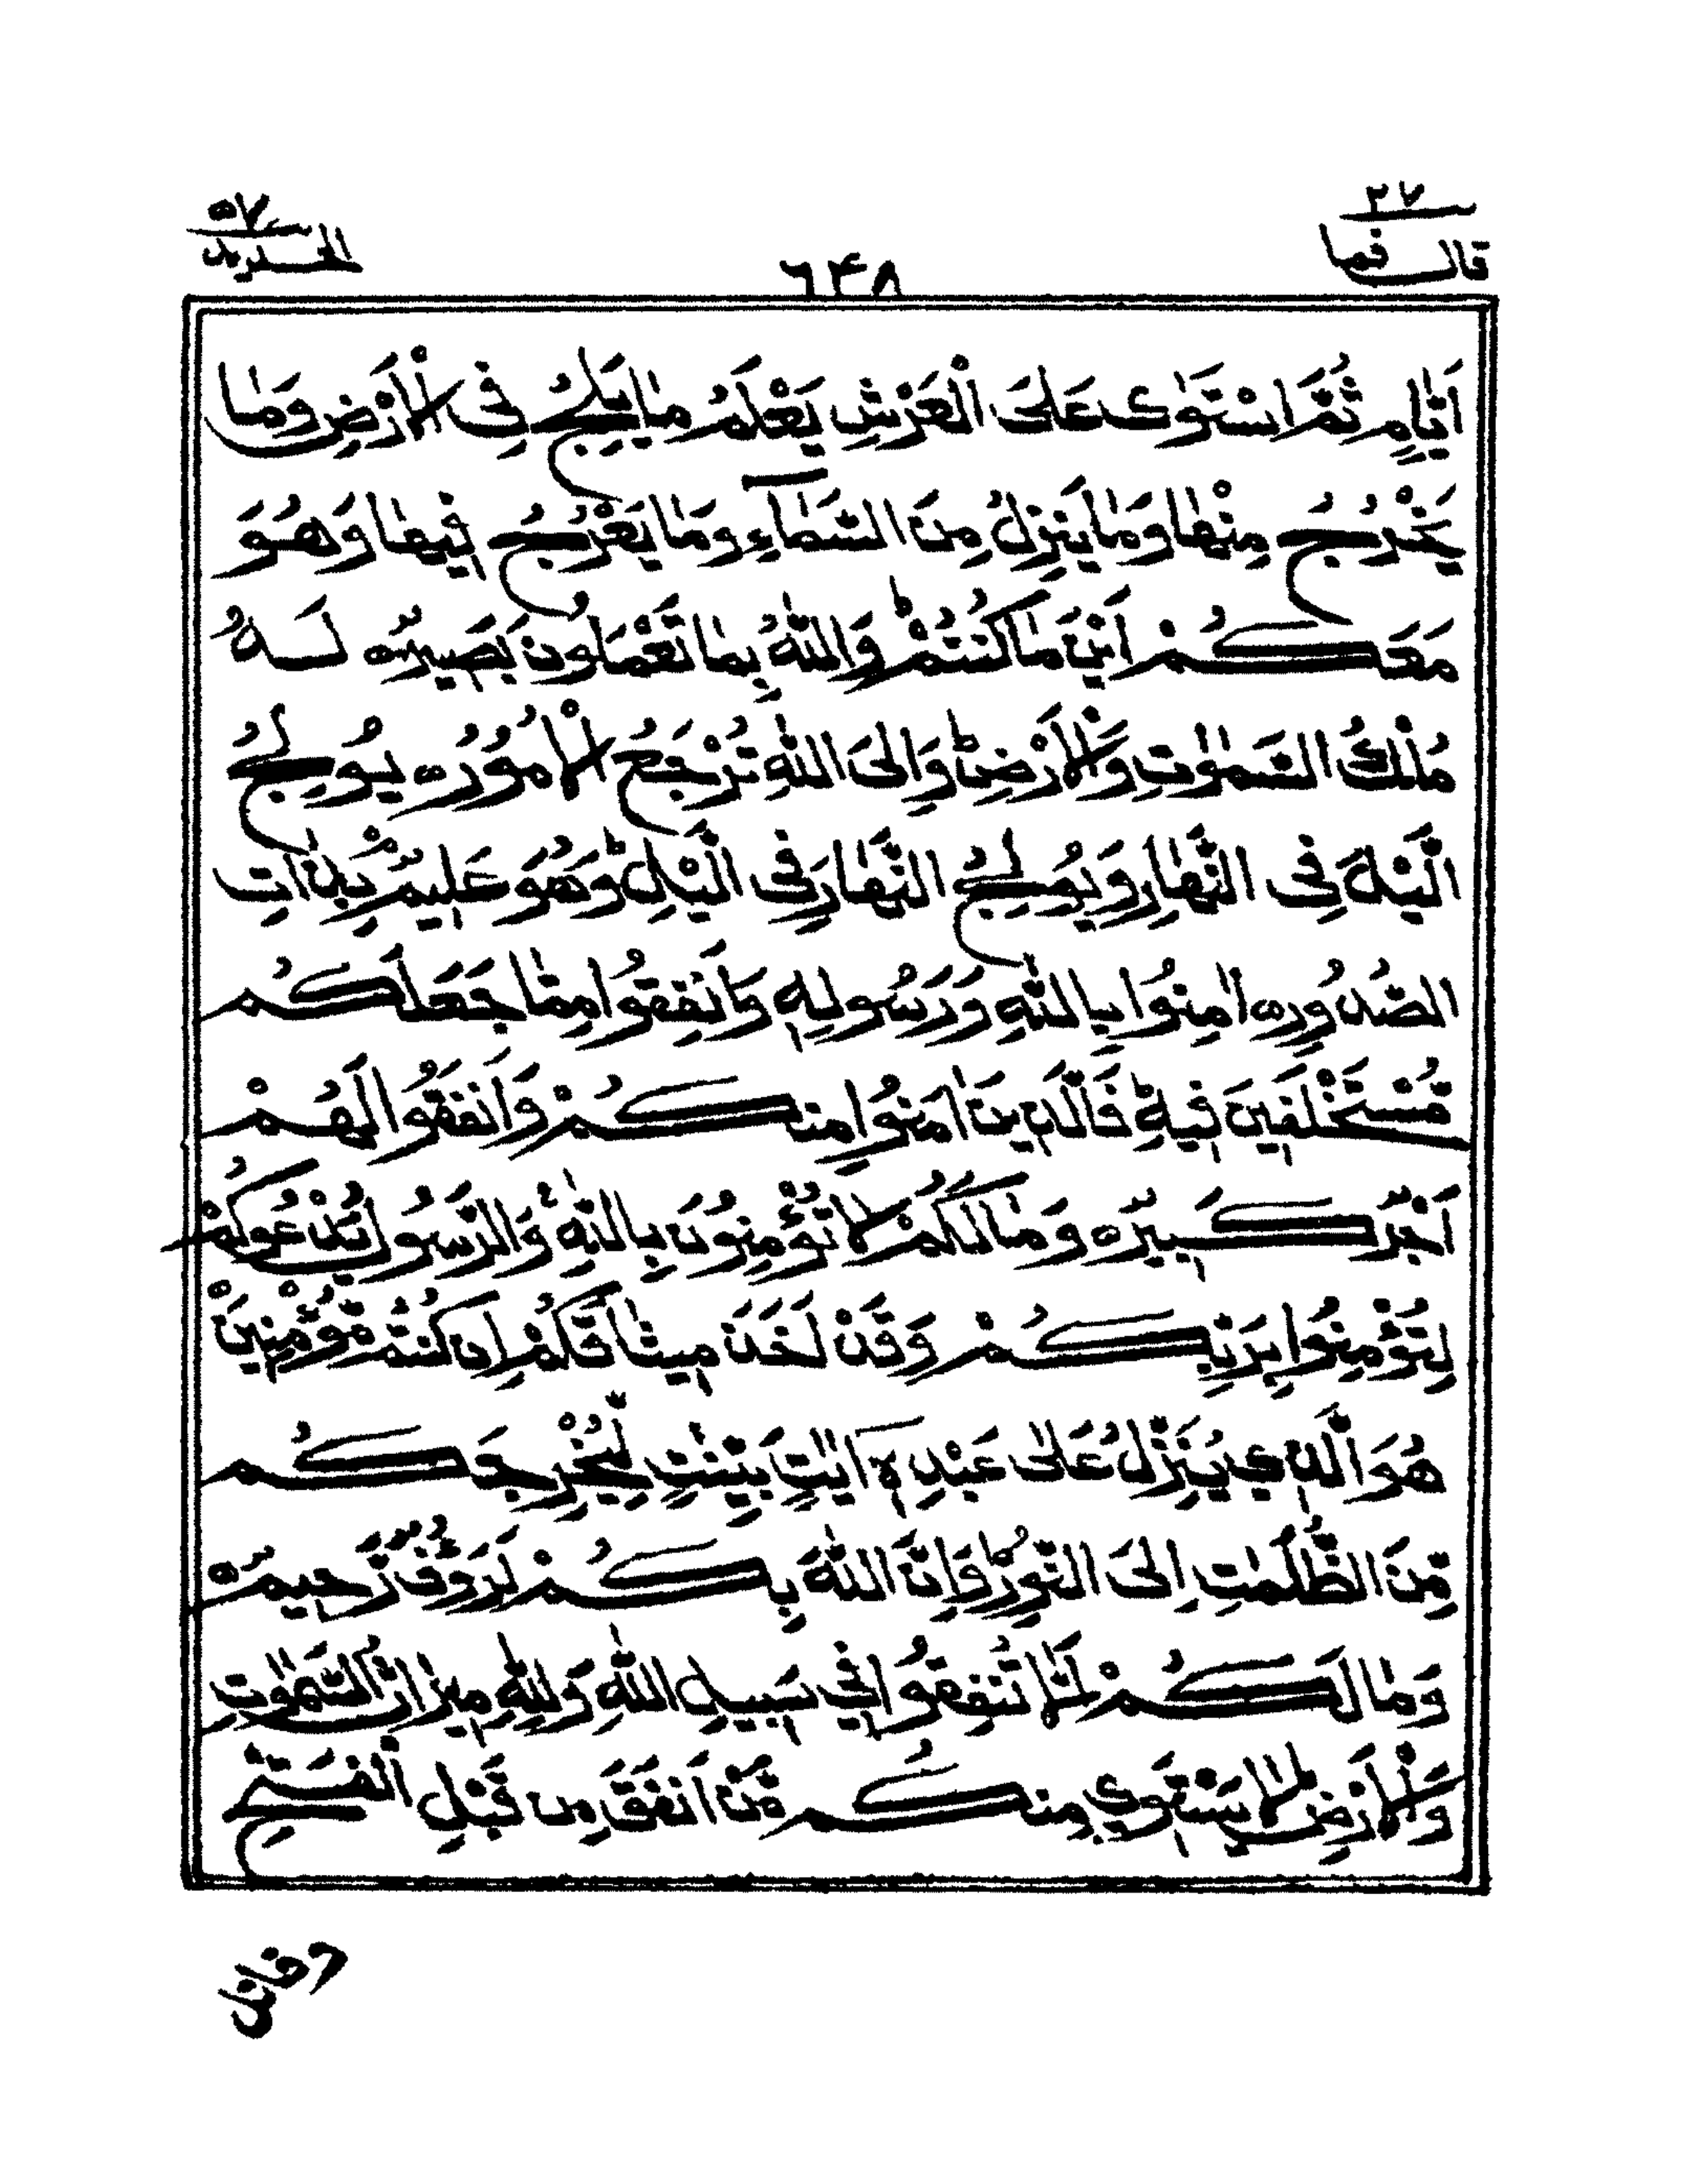 ٢٧
قال فما
٦٤٨
٥٧
الحديد
اَيَّامٍ ثُمَّ اسْتَوٰى عَلَى الْعَرْشِ يَعْلَمُ مَا يَلِجُ فِى الْاَرْضِ وَمَا
يَخْرُجُ مِنْهَا وَمَا يَنْزِلُ مِنَ السَّمَآءِ وَمَا يَعْرُجُ فِيهَا وَهُوَ
مَعَكُمْ اَيْنَ مَا كُنْتُمْ ؕ وَاللّٰهُ بِمَا تَعْمَلُونَ بَصِيرٌ ہ لَهٗ
مُلْكُ السَّمٰوٰتِ وَالْاَرْضِ ؕ وَاِلَى اللّٰهِ تُرْجَعُ الْاُمُوْرُ ہ يُوْلِجُ
الَّيْلَ فِى النَّهَارِ وَيُوْلِجُ النَّهَارَ فِى الَّيْلِ ؕ وَهُوَ عَلِيْمٌۢ بِذَاتِ
الصُّدُوْرِ ہ اٰمِنُوْا بِاللّٰهِ وَرَسُوْلِهٖ وَاَنْفِقُوْا مِمَّا جَعَلَكُم
مُّسْتَخْلَفِيْنَ فِيْهِ ؕ فَالَّذِيْنَ اٰمَنُوْا مِنكُمْ وَاَنْفَقُوْا لَهُمْ
اَجْرٌ كَبِيْرٌ ہ وَمَا لَكُمْ لَا تُؤْمِنُوْنَ بِاللّٰهِ ۚ وَالرَّسُوْلُ يَدْعُوكُمْ
لِتُؤْمِنُوْا بِرَبِّكُمْ وَقَدْ اَخَذَ مِيثَاقَكُمْ اِن كُنتُم مُّؤْمِنِيْنَ
هُوَ الَّذِي يُنَزِّلُ عَلٰى عَبْدِهٖٓ اٰيٰتٍۢ بَيِّنٰتٍ لِّيُخْرِجَكُم
مِّنَ الظُّلُمٰتِ اِلَى النُّوْرِ ؕ وَاِنَّ اللّٰهَ بِكُمْ لَرَءُوْفٌ رَّحِيمٌ ہ
وَمَا لَكُمْ اَلَّا تُنْفِقُوْا فِي سَبِيلِ اللّٰهِ وَلِلّٰهِ مِيرَاثُ السَّمٰوٰتِ
وَالْاَرْضِ ؕ لَا يَسْتَوِي مِنكُم مَّنْ اَنْفَقَ مِن قَبْلِ الْفَتْحِ
وقاتل